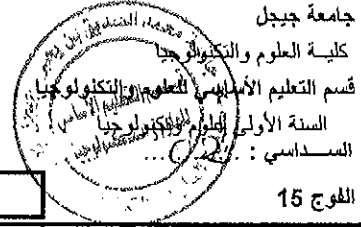 جامعة جيجل
كليـة العلوم والتكنولوجيا
قسم التعليم الأساسي للعلوم والتكنولوجيا
السنة الأولى علوم وتكنولوجيا
الســداسي :
الفوج 15